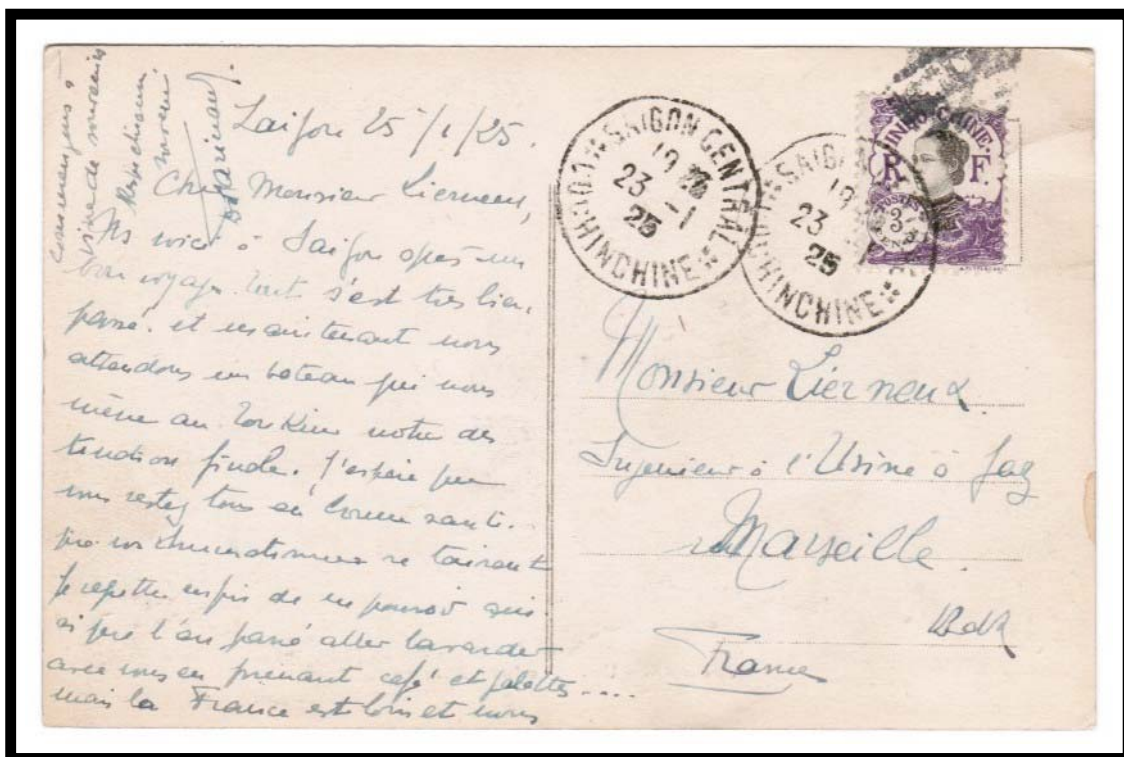 Saigon 25/1/25.
Cher Monsieur Lierneux,
voici à Saigon après un
bon voyage. tout s'est très bien
passé. et maintenant nous
attendons un bateau qui nous
mène au Tonkin notre des
tination finale. J'espère que
vous restez tous en bonne santé.
que vos se taisent
Je regrette de ne pouvoir ain
si que l'an passé aller bavarder
avec vous en prenant café et galettes....
mais la France est loin et nous
commençons à
vivre de souvenirs
SAIGON CENTRAL
19
23 -1
25
COCHINCHINE
SAIGON
19
23
25
COCHINCHINE
INDO-CHINE
R F
POSTES
3
Monsieur Lierneux.
Ingenieur à l'Usine à Gaz
Marseille.
BdR
France